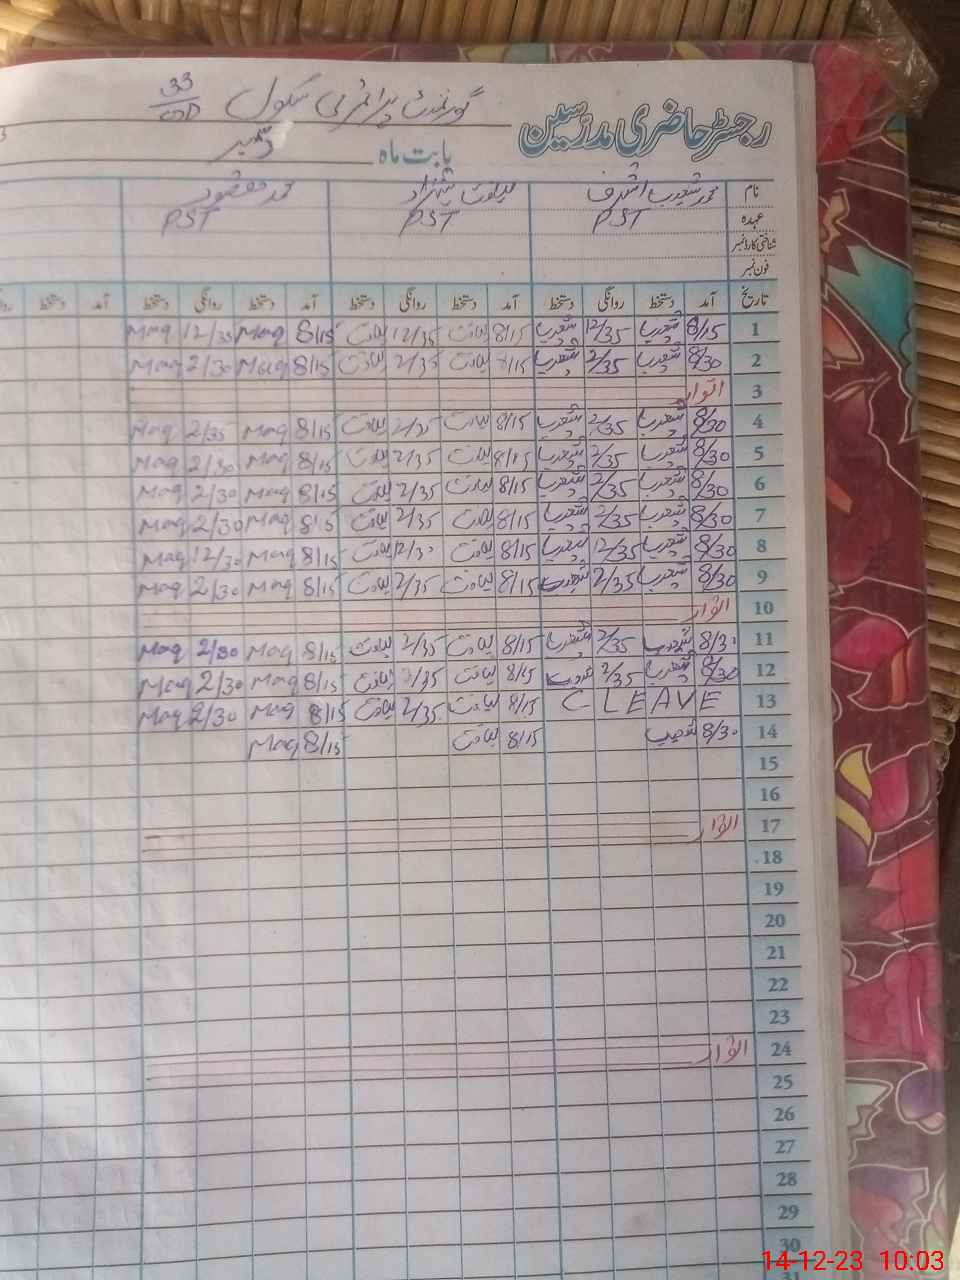 گورنمنٹ پرائمری سکول 33
رجسٹر حاضری مدرسین
بابت ماہ دسمبر
نام محمد شعیب اشرف لیاقت شہزاد محمد مقصود
عہدہ PST PST PST
شناختی کارڈ نمبر
فون نمبر
تاریخ آمد دستخط روانگی دستخط آمد دستخط روانگی دستخط آمد دستخط روانگی دستخط آمد دستخط
1 8/15 شعیب 12/35 شعیب 8/15 لیاقت 12/35 لیاقت 8/15 Maq 12/30 Maq
2 8/30 شعیب 2/35 شعیب 8/15 لیاقت 2/35 لیاقت 8/15 Maq 2/30 Maq
3 اتوار
4 8/30 شعیب 2/35 شعیب 8/15 لیاقت 2/35 لیاقت 8/15 Maq 2/35 Maq
5 8/30 شعیب 2/35 شعیب 8/15 لیاقت 2/35 لیاقت 8/15 Maq 2/30 Maq
6 8/30 شعیب 2/35 شعیب 8/15 لیاقت 2/35 لیاقت 8/15 Maq 2/30 Maq
7 8/30 شعیب 2/35 شعیب 8/15 لیاقت 2/35 لیاقت 8/15 Maq 2/30 Maq
8 8/30 شعیب 12/35 شعیب 8/15 لیاقت 12/30 لیاقت 8/15 Maq 12/30 Maq
9 8/30 شعیب 2/35 شعیب 8/15 لیاقت 2/35 لیاقت 8/15 Maq 2/30 Maq
10 اتوار
11 8/30 شعیب 2/35 شعیب 8/15 لیاقت 2/35 لیاقت 8/15 Maq 2/30 Maq
12 8/30 شعیب 2/35 شعیب 8/15 لیاقت 2/35 لیاقت 8/15 Maq 2/30 Maq
13 C LEAVE 8/15 لیاقت 2/35 لیاقت 8/15 Maq 2/30 Maq
14 8/30 شعیب 8/15 لیاقت 8/15 Maq
15
16
17 اتوار
18
19
20
21
22
23
24 اتوار
25
26
27
28
29
30
31
14-12-23 10:03